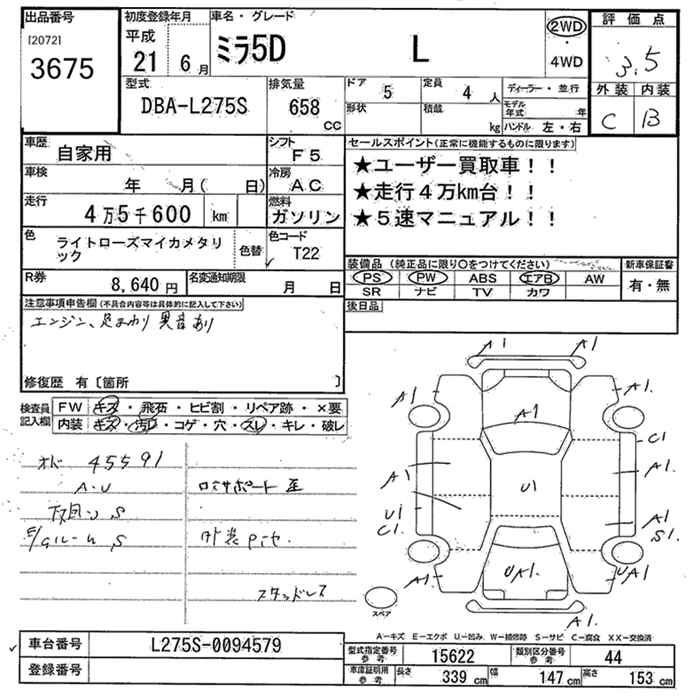 出品番号
[2072]
3675
初度登録年月
平成
21 6月
車名・グレード
ミラ5D L
2WD
・
4WD
評価点
3.5
外装 内装
C B
型式
DBA-L275S
排気量
658
cc
ドア 5 定員 4人
形状 積載 kg
ディーラー・並行
モデル年式 年
ハンドル 左・右
車歴 自家用
シフト F5
車検 年 月( 日)
冷房 AC
走行 4万5千600 km
燃料 ガソリン
色 ライトローズマイカメタリック
色替
色コード T22
R券 8,640円
名変通知期限 月 日
セールスポイント(正常に機能するものに限ります)
★ユーザー買取車!!
★走行4万km台!!
★5速マニュアル!!
装備品(純正品に限り○をつけてください)
PS PW ABS エアB AW
SR ナビ TV カワ
新車保証書
有・無
後日品
注意事項申告欄(不具合内容等は具体的に記入して下さい)
エンジン、足まわり 異音あり
修復歴 有〔箇所 〕
検査員記入欄
FW キズ・飛石・ヒビ割・リペア跡・×要
内装 キズ・汚レ・コゲ・穴・スレ・キレ・破レ
45591
A・U
下廻り S
S
コアサポート 歪
外装
スタッドレス
A1 A1
A1 A1 A1.
C1
A1 A1.
U1 U1 A1
C1. S1.
A1. UA1. UA1
A1.
スペア
A―キズ E―エクボ U―凹み W―補修跡 S―サビ C―腐食 XX―交換済
車台番号 L275S-0094579
登録番号
型式指定番号 参考 15622
類別区分番号 参考 44
車庫証明用 参考 長さ 339 cm 幅 147 cm 高さ 153 cm